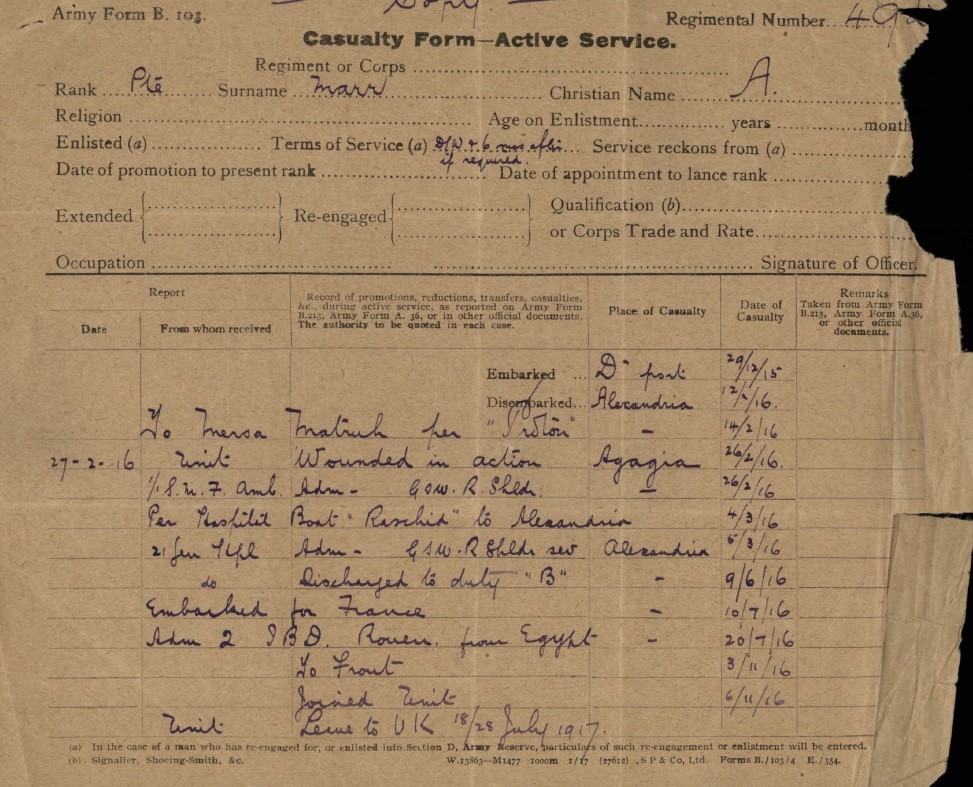 Army Form B. 103. Copy. Regimental Number
Casualty Form—Active Service.
Regiment or Corps
Rank Pte Surname Marr Christian Name A.
Religion Age on Enlistment years month
Enlisted (a) Terms of Service (a) D/W & 6 after Service reckons from (a)
if required.
Date of promotion to present rank Date of appointment to lance rank
Extended Re-engaged Qualification (b)
or Corps Trade and Rate
Occupation Signature of Officer.
Report
Date From whom received
Record of promotions, reductions, transfers, casualties,
&c., during active service, as reported on Army Form
B.213, Army Form A. 36, or in other official documents.
The authority to be quoted in each case.
Place of Casualty
Date of
Casualty
Remarks
Taken from Army Form
B.213, Army Form A.36,
or other official
documents.
Embarked ... D' port 29/12/15
Disembarked... Alexandria 12/1/16.
To Mersa Matruh per - 14/2/16
27-2-16 Unit Wounded in action Agagia 26/2/16.
Amb. Adm - GSW. R. Shldr. - 26/2/16
Per Hospital Boat "Raschid" to Alexandria 4/3/16
21 Gen Hpl Adm - GSW. R Shldr sev Alexandria 5/3/16
do Discharged to duty "B" - 9/6/16
Embarked for France - 10/7/16
Adm 2 I B D. Rouen. from Egypt - 20/7/16
To Front 3/11/16
Joined Unit 6/11/16
Unit Leave to UK 18/28 July 1917.
(a) In the case of a man who has re-engaged for, or enlisted into Section D, Army Reserve, particulars of such re-engagement or enlistment will be entered.
(b). Signaller, Shoeing-Smith, &c. W.13863—M1477 1000m 1/17 (27612) .S P & Co, Ltd. Forms B./103/4 E./354.